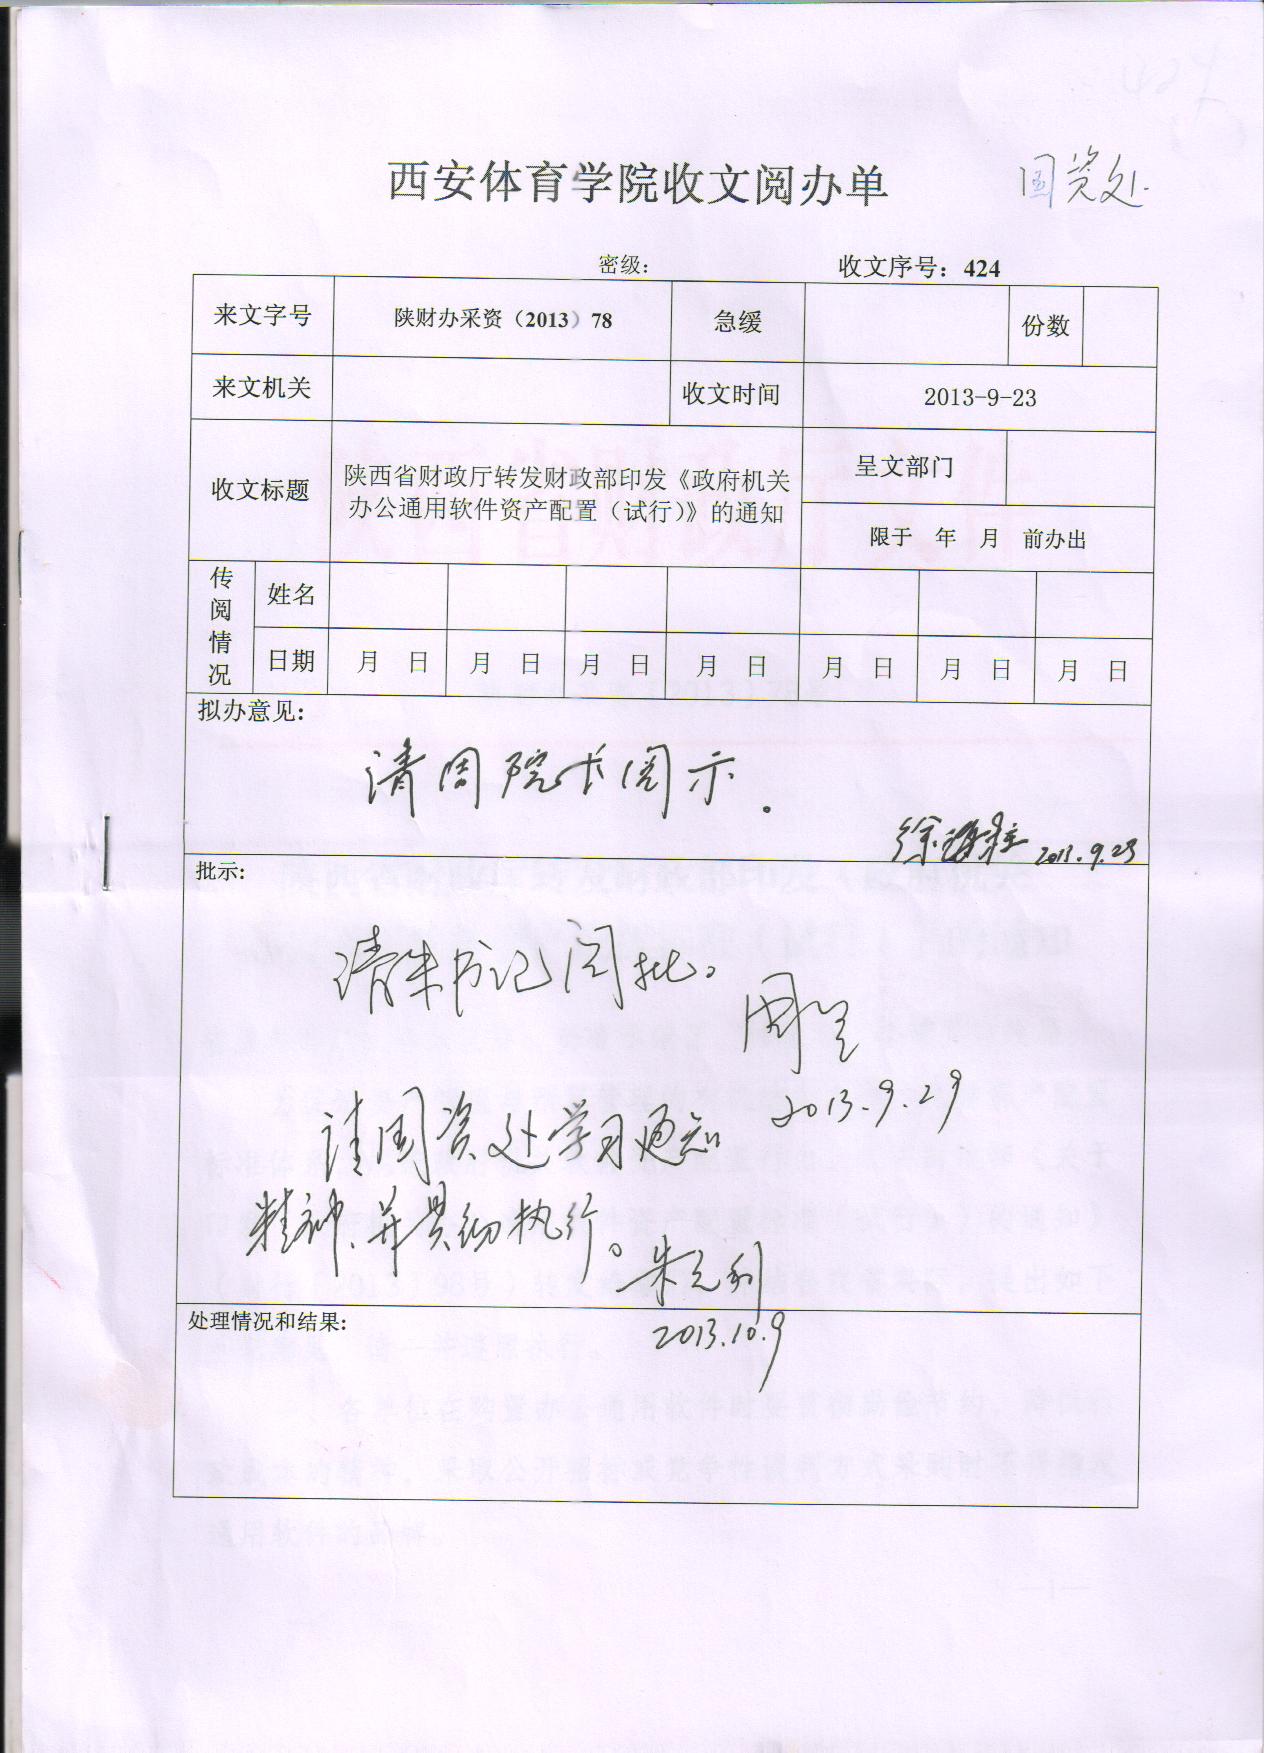 西安体育学院收文阅办单
国资处
密级：
收文序号：424
来文字号 陕财办采资（2013）78 急缓 份数
来文机关 收文时间 2013-9-23
收文标题 陕西省财政厅转发财政部印发《政府机关
办公通用软件资产配置（试行）》的通知
呈文部门
限于 年 月 前办出
传阅情况
姓名
日期 月 日 月 日 月 日 月 日 月 日 月 日 月 日
拟办意见：
请周院长阅示。
2013.9.23
批示：
请朱书记阅批。
周
2013.9.29
请国资处学习通知
精神、并贯彻执行。
朱元利
2013.10.9
处理情况和结果：